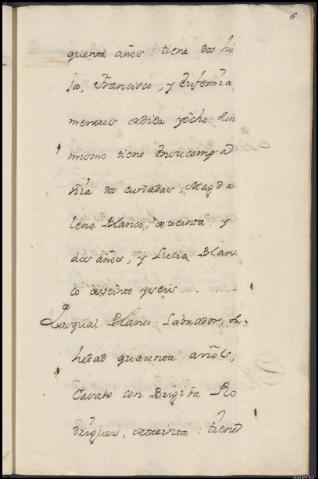 6
quenta años: tiene dos hi
jos, Francisco, y Eufemia
menores de diez y ocho Asi
mismo tiene en su compa
ñia dos cuñadas, Magda
lena Blanco, de treinta, y
dos años, y Lucia Blan
co de veinte y seis.
Pasqual Blanco, Labrador, de
hedad quarenta años,
Casado con Brigida Ro
driguez, de treinta: tiene